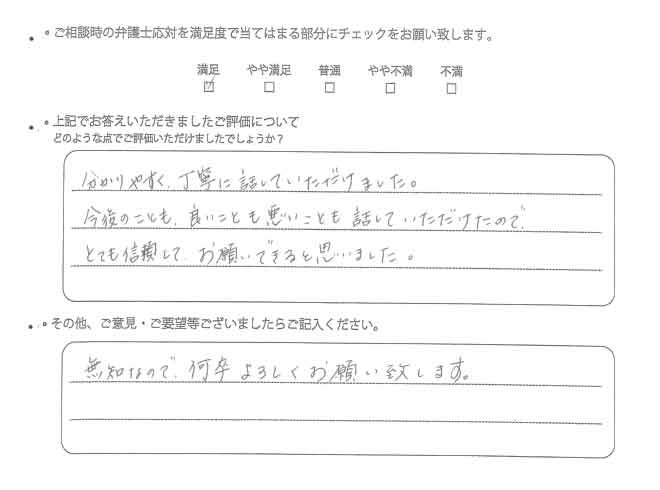 ・ご相談時の弁護士応対を満足度で当てはまる部分にチェックをお願い致します。
満足 やや満足 普通 やや不満 不満
☑ □ □ □ □
・上記でお答えいただきましたご評価について
どのような点でご評価いただけましたでしょうか？
分かりやすく、丁寧に話していただけました。
今後のことも、良いことも悪いことも話していただけたので、
とても信頼して、お願いできると思いました。
・その他、ご意見・ご要望等ございましたらご記入ください。
無知なので、何卒よろしくお願い致します。